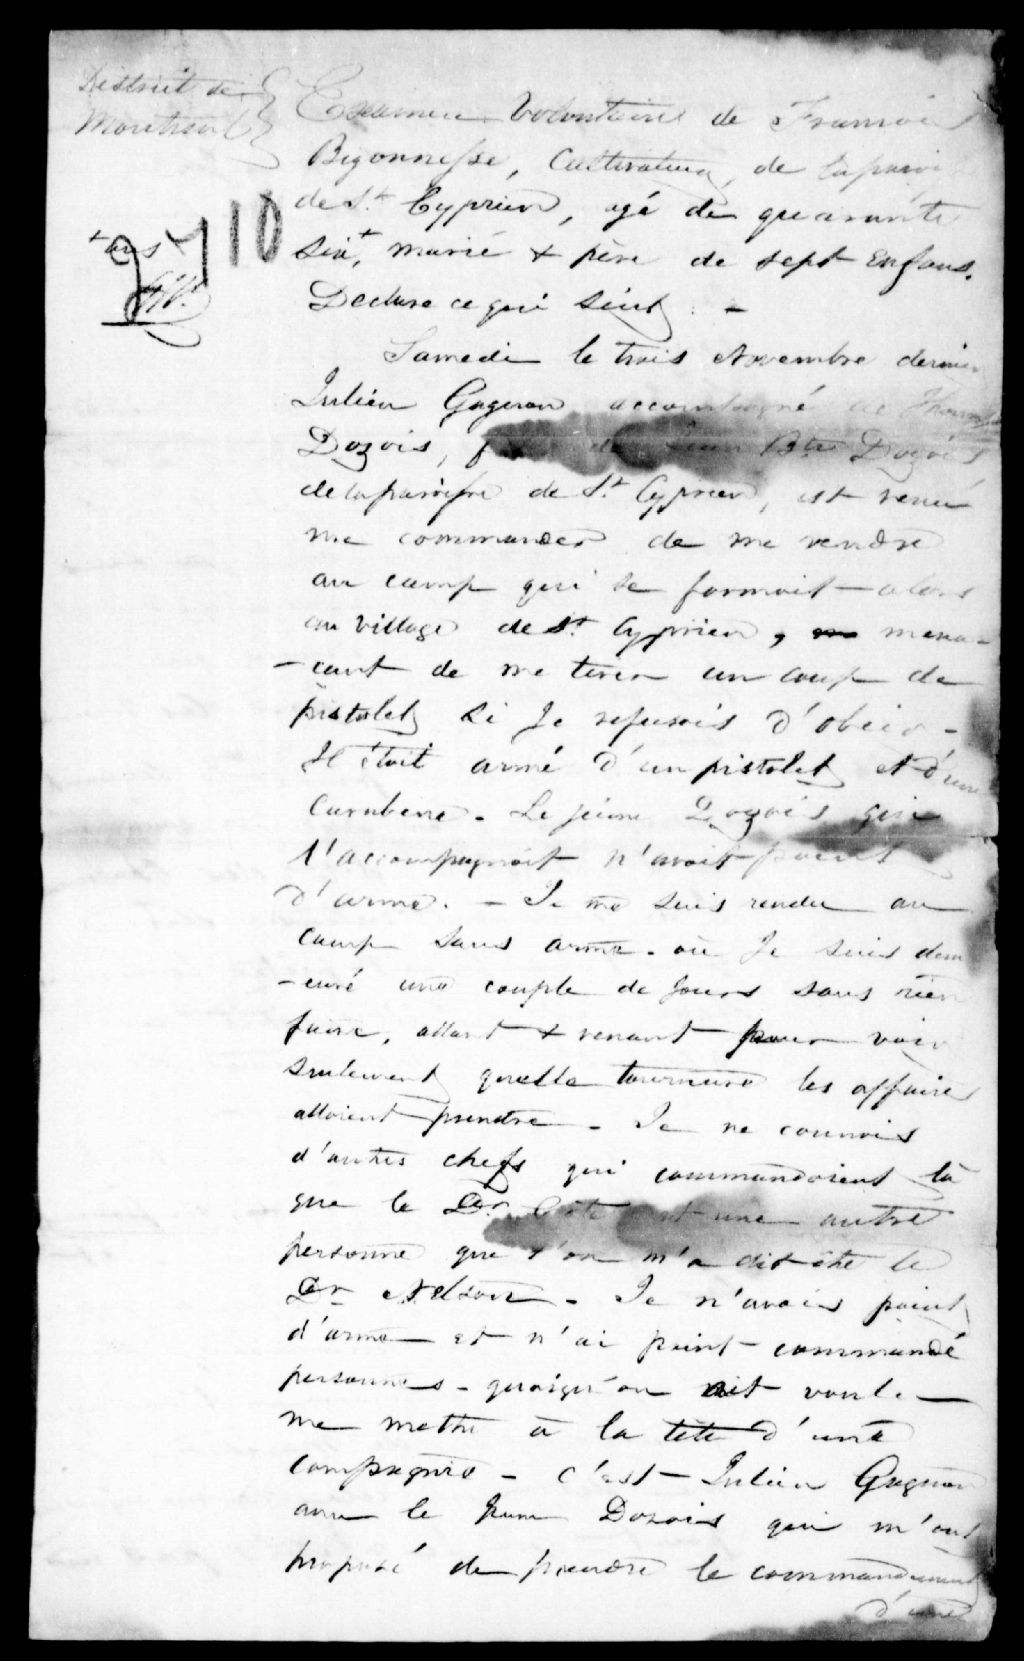 District de
Montréal
Examen Volontaire de François
Bigonnesse, Cultivateur, de la paroi
de St. Cyprien, agé de quarante
+ ans
2710
six+, marié & père de sept Enfans.
Declare ce qui suit : -
Samedi le trois Novembre dernier
Julien Gagnon accompagné de Thomas
Dozois, de Jean Bte Dozois
de la paroisse de St. Cyprien, est venu
me commander de me rendre
au camp qui se formoit alors
au village de St. Cyprien, mena-
-cant de me tirer un coup de
pistolet si Je refusois d'obéir -
Il étoit armé d'un pistolet et d'une
Carabine. - Le jeune Dozois qui
l'accompagnoit n'avoit point
d'arme. - Je me suis rendu au
camp sans arme. où Je suis dem
-euré une couple de Jours sans rien
faire, allant & venant pour voir
seulement quelle tournure les affaires
alloient prendre. - Je ne connois
d'autres chefs qui commandoient là
que le Dr Côte et une autre
personne que l'on m'a dit être le
Dr Nelson. - Je n'avois point
d'arme et n'ai point commandé
personnes - quoiqu'on ait voulu
me mettre à la tête d'une
compagnie - c'est Julien Gagnon
avec le jeune Dozois qui m'ont
proposé de prendre le commandement
d'une